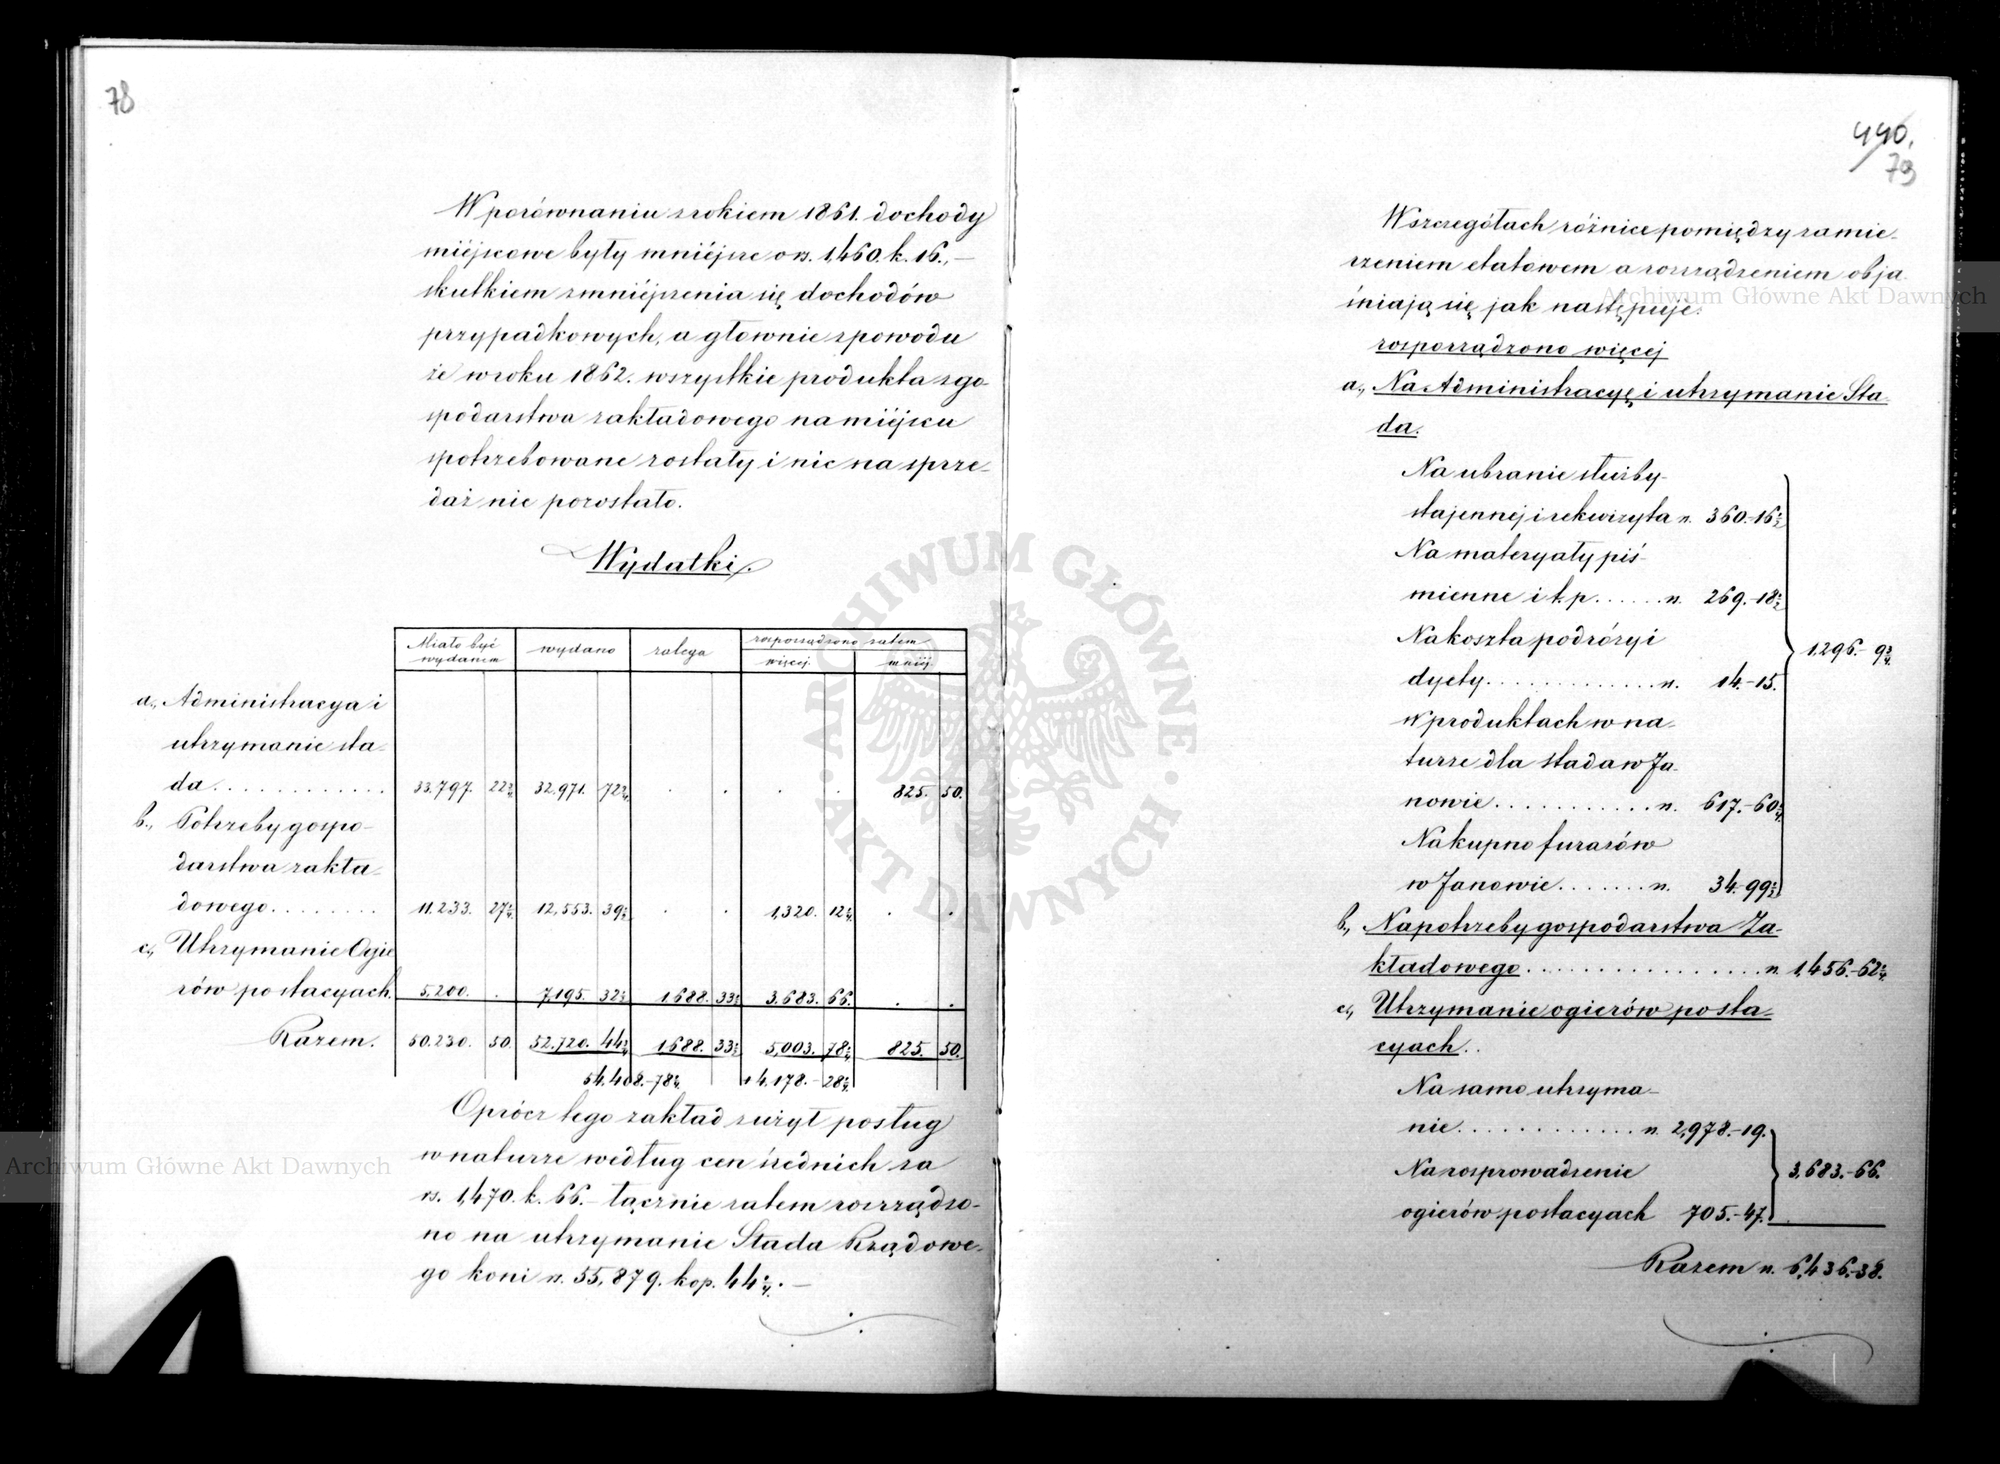 78
W porównaniu z rokiem 1861. dochody
miéjscowe były mniéjsze o rs. 1,460. k. 16., —
skutkiem zmniéjszenia się dochodów
przypadkowych, a głownie zpowodu
że w roku 1862. wszystkie produkta z go-
spodarstwa zakładowego na miéjscu
spotrzebowane zostały i nic na sprze-
daż nie pozostało.
Wydatki.
Miało być wydanem | wydano | zalega | rozporządzono zatem
więcej | mniéj
a., Administracya i
utrzymanie sta-
da . . . . . . . . . . . . 33.797. 22 32.971. 72 . . . . 825. 50.
b., Potrzeby gospo-
darstwa zakła-
dowego . . . . . . . . 11.233. 27 12,553. 39 . . 1,320. 12 . .
c., Utrzymanie Ogie
rów po stacyach. 5,200. . 7,195. 32 1688. 33 3,683. 66. . .
Razem. 50.230. 50. 52.720. 44 1688. 33 5,003. 78 825. 50.
54.408.-78 +4.178.-28
Oprócz tego zakład zużył posług
w naturze według cen średnich za
rs. 1,470. k. 66.- łącznie zatem rozrządzo-
no na utrzymanie Stada Rządowe-
go koni rs. 55,879. kop. 44. —
440.
79
W szczegółach różnice pomiędzy zamie-
rzeniem etatowem a rozrządzeniem obja-
śniają się jak następuje:
rozporządzono więcej
a., Na Administracyę i utrzymanie Sta-
da.
Na ubranie służby
stajennej i rekwizyta rs. 360.-16
Na materyały piś-
mienne i t. p. . . . . . rs. 269.-18
Na koszta podróży i
dyety . . . . . . . . . . . . . rs. 14.-15.
1,296.- 9
w produktach w na-
turze dla stada w Ja-
nowie . . . . . . . . . . . . rs. 617.-60
Na kupno furażów
w Janowie . . . . . . . rs. 34.-99
b., Na potrzeby gospodarstwa Za-
kładowego . . . . . . . . . . . . . . . . . rs 1,456.-62
c., Utrzymanie ogierów po sta-
cyach . .
Na samo utrzyma-
nie . . . . . . . . . . . . . rs. 2,978.-19.
Na rozprowadzenie
3,683.-66.
ogierów po stacyach 705.-47.
Razem rs. 6,436.-38.
Archiwum Główne Akt Dawnych
Archiwum Główne Akt Dawnych
ARCHIWUM GŁÓWNE · AKT DAWNYCH ·